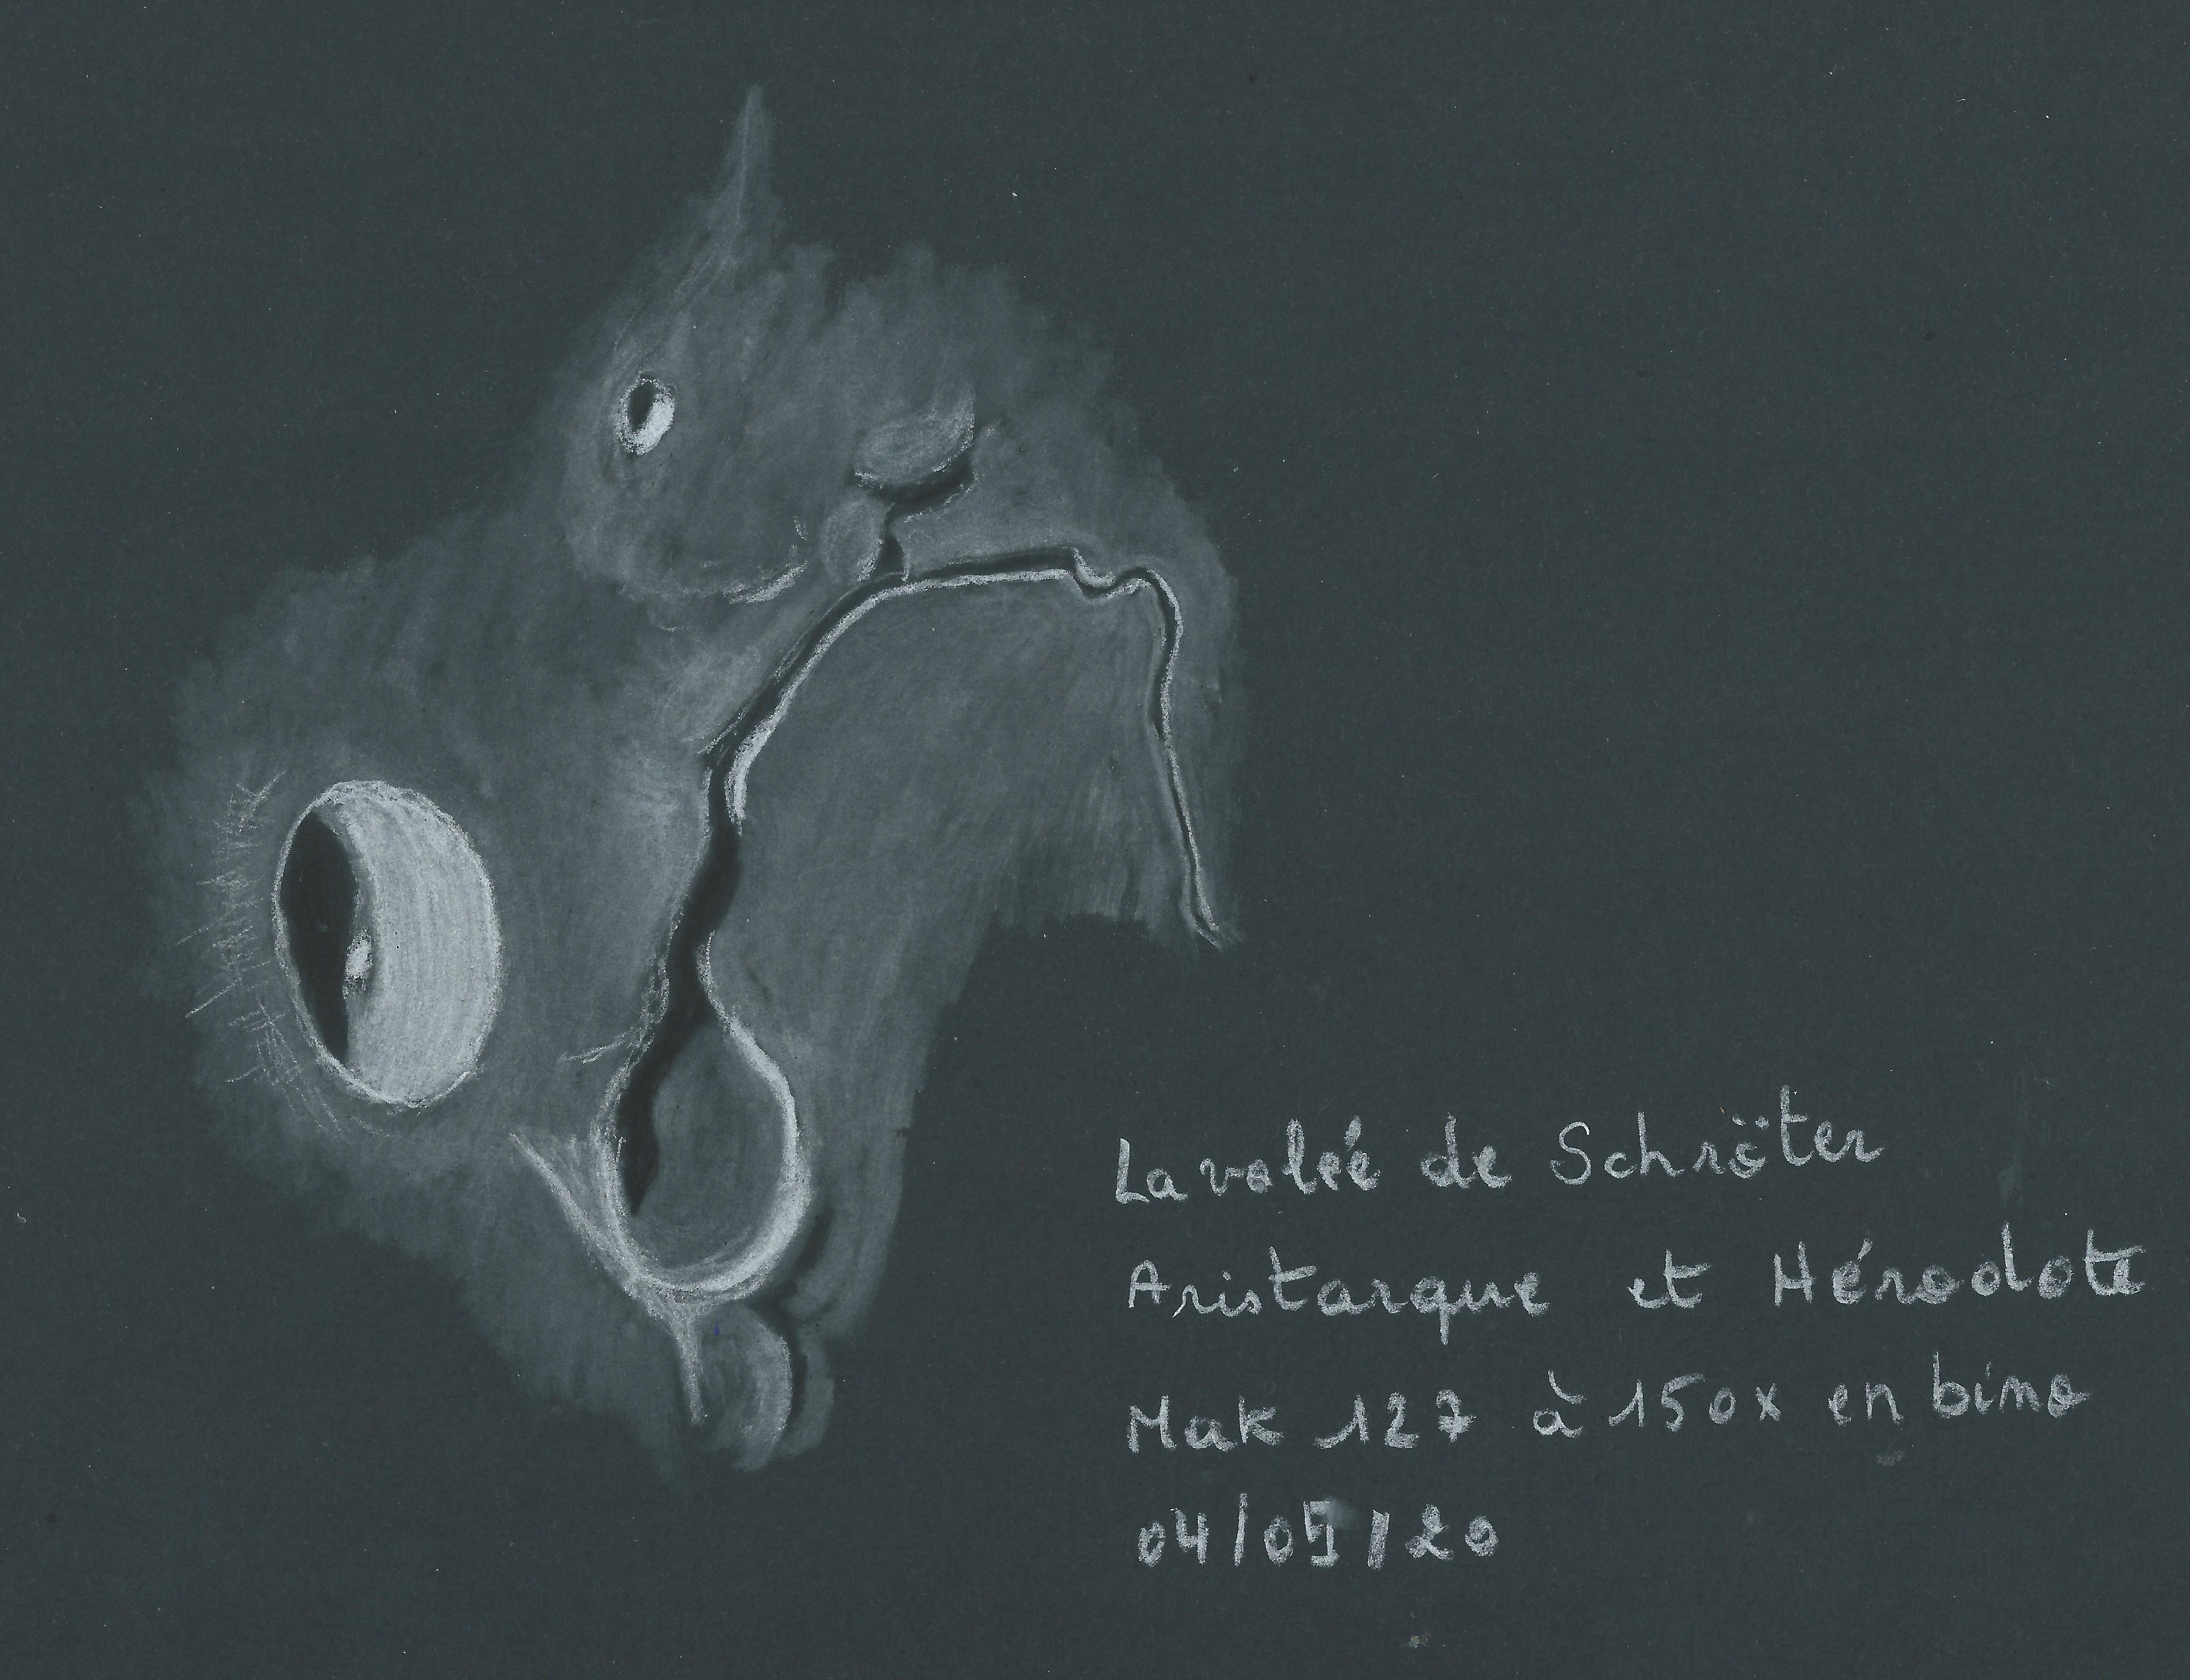 La valeé de Schröter
Aristarque et Hérodote
Mak 127 à 150x en bino
04/05/20